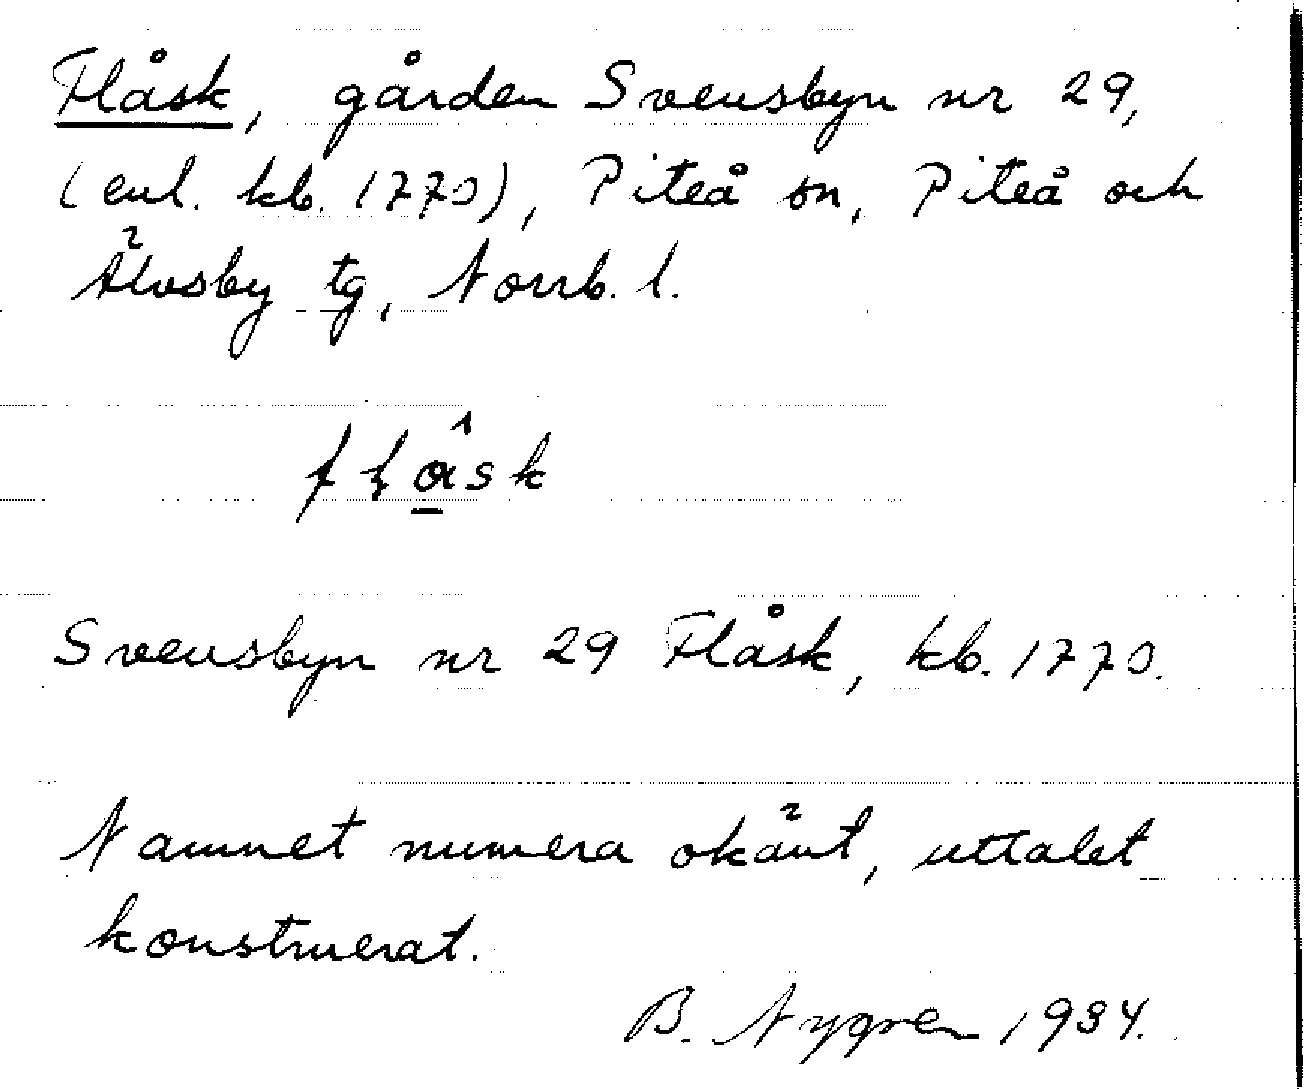 Flåsk, gården Svensbyn nr 29,
(enl. kb. 1770), Piteå sn, Piteå och
Älvsby tg, Norrb. l.
Svensbyn nr 29 Flåsk, kb. 1770.
Namnet numera okänt, uttalet
konstruerat.
B. Nygren 1934.